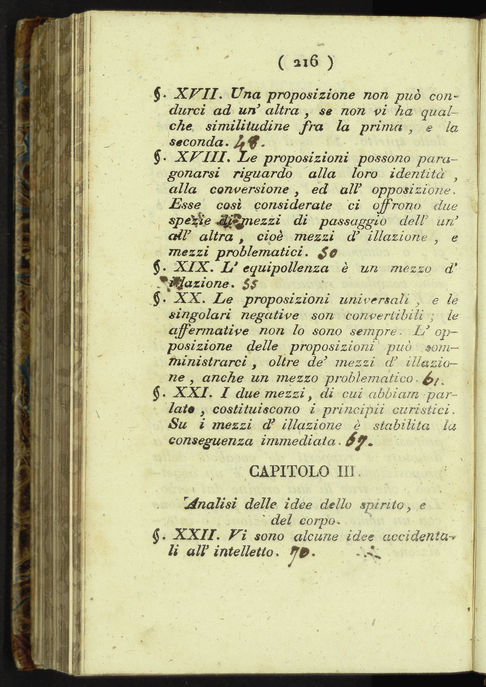 ( 216 )
§. XVII. Una proposizione non può con-
durci ad un' altra , se non vi ha qual-
che similitudine fra la prima , e la
seconda. 48.
§. XVIII. Le proposizioni possono para-
gonarsi riguardo alla loro identità ,
alla conversione , ed all' opposizione.
Esse così considerate ci offrono due
spezie di mezzi di passaggio dell' un'
all' altra , cioè mezzi d' illazione , e
mezzi problematici. 50
§. XIX. L' equipollenza è un mezzo d'
illazione. 55
§. XX. Le proposizioni universali , e le
singolari negative son convertibili ; le
affermative non lo sono sempre. L' op-
posizione delle proposizioni può som-
ministrarci , oltre de' mezzi d' illazio-
ne , anche un mezzo problematico. 61.
§. XXI. I due mezzi , di cui abbiam par-
lato , costituiscono i principii euristici.
Su i mezzi d' illazione è stabilita la
conseguenza immediata. 67.
CAPITOLO III.
Analisi delle idee dello spirito, e
del corpo.
§. XXII. Vi sono alcune idee accidenta-
li all' intelletto. 70.